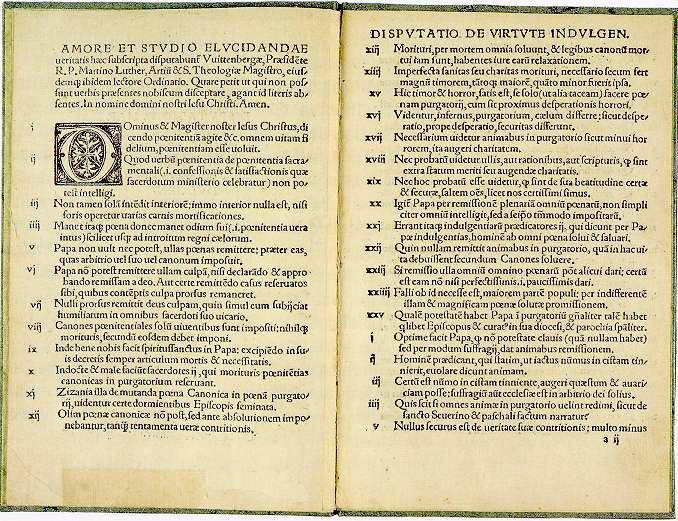 AMORE ET STVDIO ELVCIDANDAE
ueritatis hæc subscripta disputabunt̃ Vuittenbergæ, Præsidẽte
R. P. Martino Luther, Artiũ & S. Theologiæ Magistro, eius-
dem q̃ ibidem lectore Ordinario. Quare petit ut qui non pos-
sunt uerbis præsentes nobiscum disceptare, agant id literis ab-
sentes. In nomine domini nostri Iesu Christi. Amen.
i Dominus & Magister noster Iesus Christus, di
cendo pœnitentiã agite &c, omnem uitam fi
delium, pœnitentiam esse uoluit.
ij Quod uerbũ pœnitentia de pœnitentia sacra-
mentali (.i. confessionis & satisfactionis quæ
sacerdotum ministerio celebratur) non po-
test intelligi.
iij Non tamen solã intẽdit interiorẽ; immo interior nulla est, nisi
foris operetur uarias carnis mortificationes.
iiij Manet itaq; pœna donec manet odium sui (.i. pœnitentia uera
intus) scilicet usq; ad introitum regni cælorum.
v Papa non uult nec potest, ullas pœnas remittere; præter eas,
quas arbitrio uel suo uel canonum imposuit.
vj Papa nõ potest remittere ullam culpã, nisi declarãdo & appro-
bando remissam a deo. Aut certe remittẽdo casus reseruatos
sibi, quibus contẽptis culpa prorsus remaneret.
vij Nulli prorsus remittit deus culpam, quin simul eum subijciat
humiliatum in omnibus sacerdoti suo uicario.
viij Canones pœnitentiales solũ uiuentibus sunt impositi; nihilq;
morituris, secundũ eosdem debet imponi.
ix Inde bene nobis facit spiritussanctus in Papa; excipiẽdo in su-
is decretis semper articulum mortis & necessitatis.
x Indocte & male faciũt sacerdotes ij, qui morituris pœnitẽtias
canonicas in purgatorium reseruant.
xj Zizania illa de mutanda pœna Canonica in pœnã purgato-
rij, uidentur certe dormientibus Episcopis seminata.
xij Olim pœnæ canonicæ nõ post, sed ante absolutionem impo-
nebantur, tanq̃ tentamenta ueræ contritionis.
DISPVTATIO DE VIRTVTE INDVLGEN.
xiij Morituri, per mortem omnia soluunt, & legibus canonũ mor-
tui iam sunt, habentes iure earũ relaxationem.
xiiij Imperfecta sanitas seu charitas morituri, necessario secum fert
magnũ timorem, tãtoq; maiorẽ, quãto minor fuerit ipsa.
xv Hic timor & horror, satis est, se solo (ut alia taceam) facere pœ-
nam purgatorij, cum sit proximus desperationis horrori.
xvj Videntur, infernus, purgatorium, cælum differre; sicut despe-
ratio, prope desperatio, securitas differunt.
xvij Necessarium uidetur animabus in purgatorio sicut minui hor
rorem, ita augeri charitatem.
xviij Nec probatũ uidetur ullis, aut rationibus, aut scripturis, q̃ sint
extra statum meriti seu augendæ charitatis.
xix Nec hoc probatũ esse uidetur, q̃ sint de sua beatitudine certæ
& securæ, saltem oẽs, licet nos certissimi simus.
xx Igit̃ Papa per remissionẽ plenariã omniũ pœnarũ, non simpli
citer omniũ intelligit, sed a seipõ tm̃modo impositarũ.
xxj Errant itaq; indulgentiarũ prædicatores ij, qui dicunt per Pa-
pæ indulgentias, hominẽ ab omni pœna solui & saluari.
xxij Quin nullam remittit animabus in purgatorio, quã in hac ui-
ta debuissent secundum Canones soluere.
xxiij Si remissio ulla omniũ omnino pœnarũ põt alicui dari; certũ
est eam nõ nisi perfectissimis .i. paucissimis dari.
xxiiij Falli ob id necesse est, maiorem partẽ populi; per indifferentẽ
illam & magnificam pœnæ solutæ promissionem.
xxv Qualẽ potestatẽ habet Papa ĩ purgatoriũ g̃naliter talẽ habet
q̃libet Episcopus & curat9 in sua diocesi, & parochia sp̃aliter.
i Optime facit Papa, q̃ nõ potestate clauis (quã nullam habet)
sed per modum suffragij, dat animabus remissionem.
ij Hominẽ prædicant, qui statim, ut iactus nũmus in cistam tin-
nierit, euolare dicunt animam.
iij Certũ est nũmo in cistam tinniente, augeri quæstum & auari-
ciam posse; suffragiũ aũt ecclesiæ est in arbitrio dei solius.
iiij Quis scit si omnes animæ in purgatorio uelint redimi, sicut de
sancto Seuerino & paschali factum narratur.
v Nullus securus est de ueritate suæ contritionis; multo minus
a ij